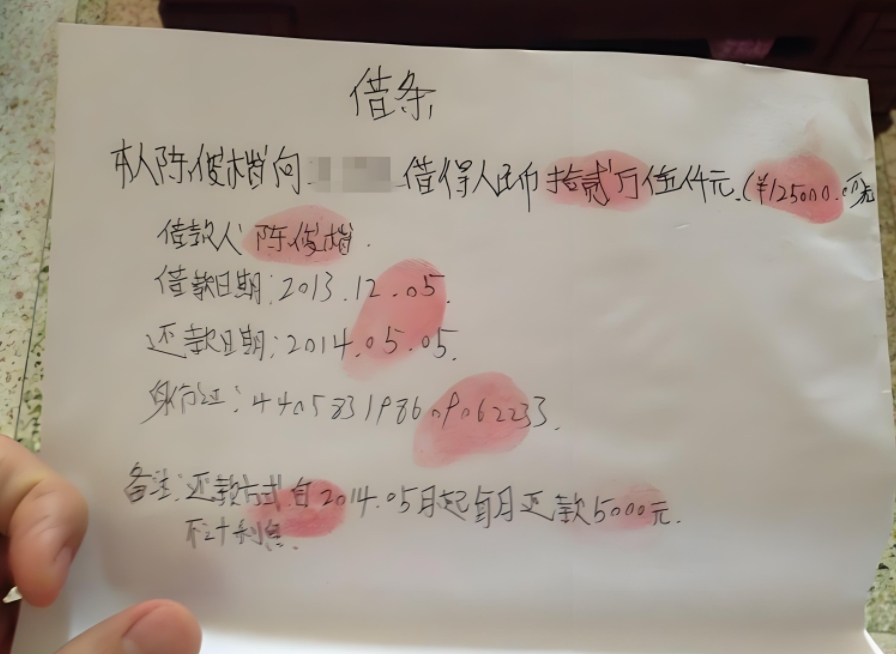 借条
本人陈俊楷向 借得人民币拾贰万伍仟元.(¥125000.00元
借款人 陈俊楷.
借款日期:2013.12.05.
还款日期:2014.05.05.
身份证:440583198609062233.
备注:还款方式自2014.05月起每月还款5000元.
不计利息.